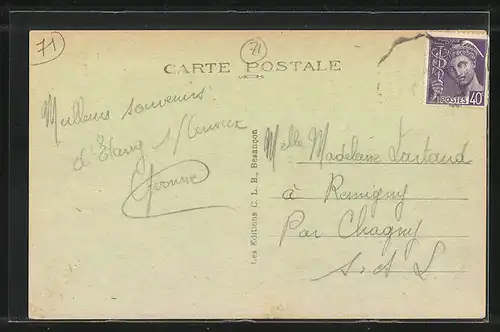 71
71
CARTE POSTALE
POSTES 40
Meilleurs souvenirs
d'Etang s/Arroux
Yvonne
Les Editions C. L. B., Besançon
Melle Madeleine
à Remigny
Par Chagny
S. et L.